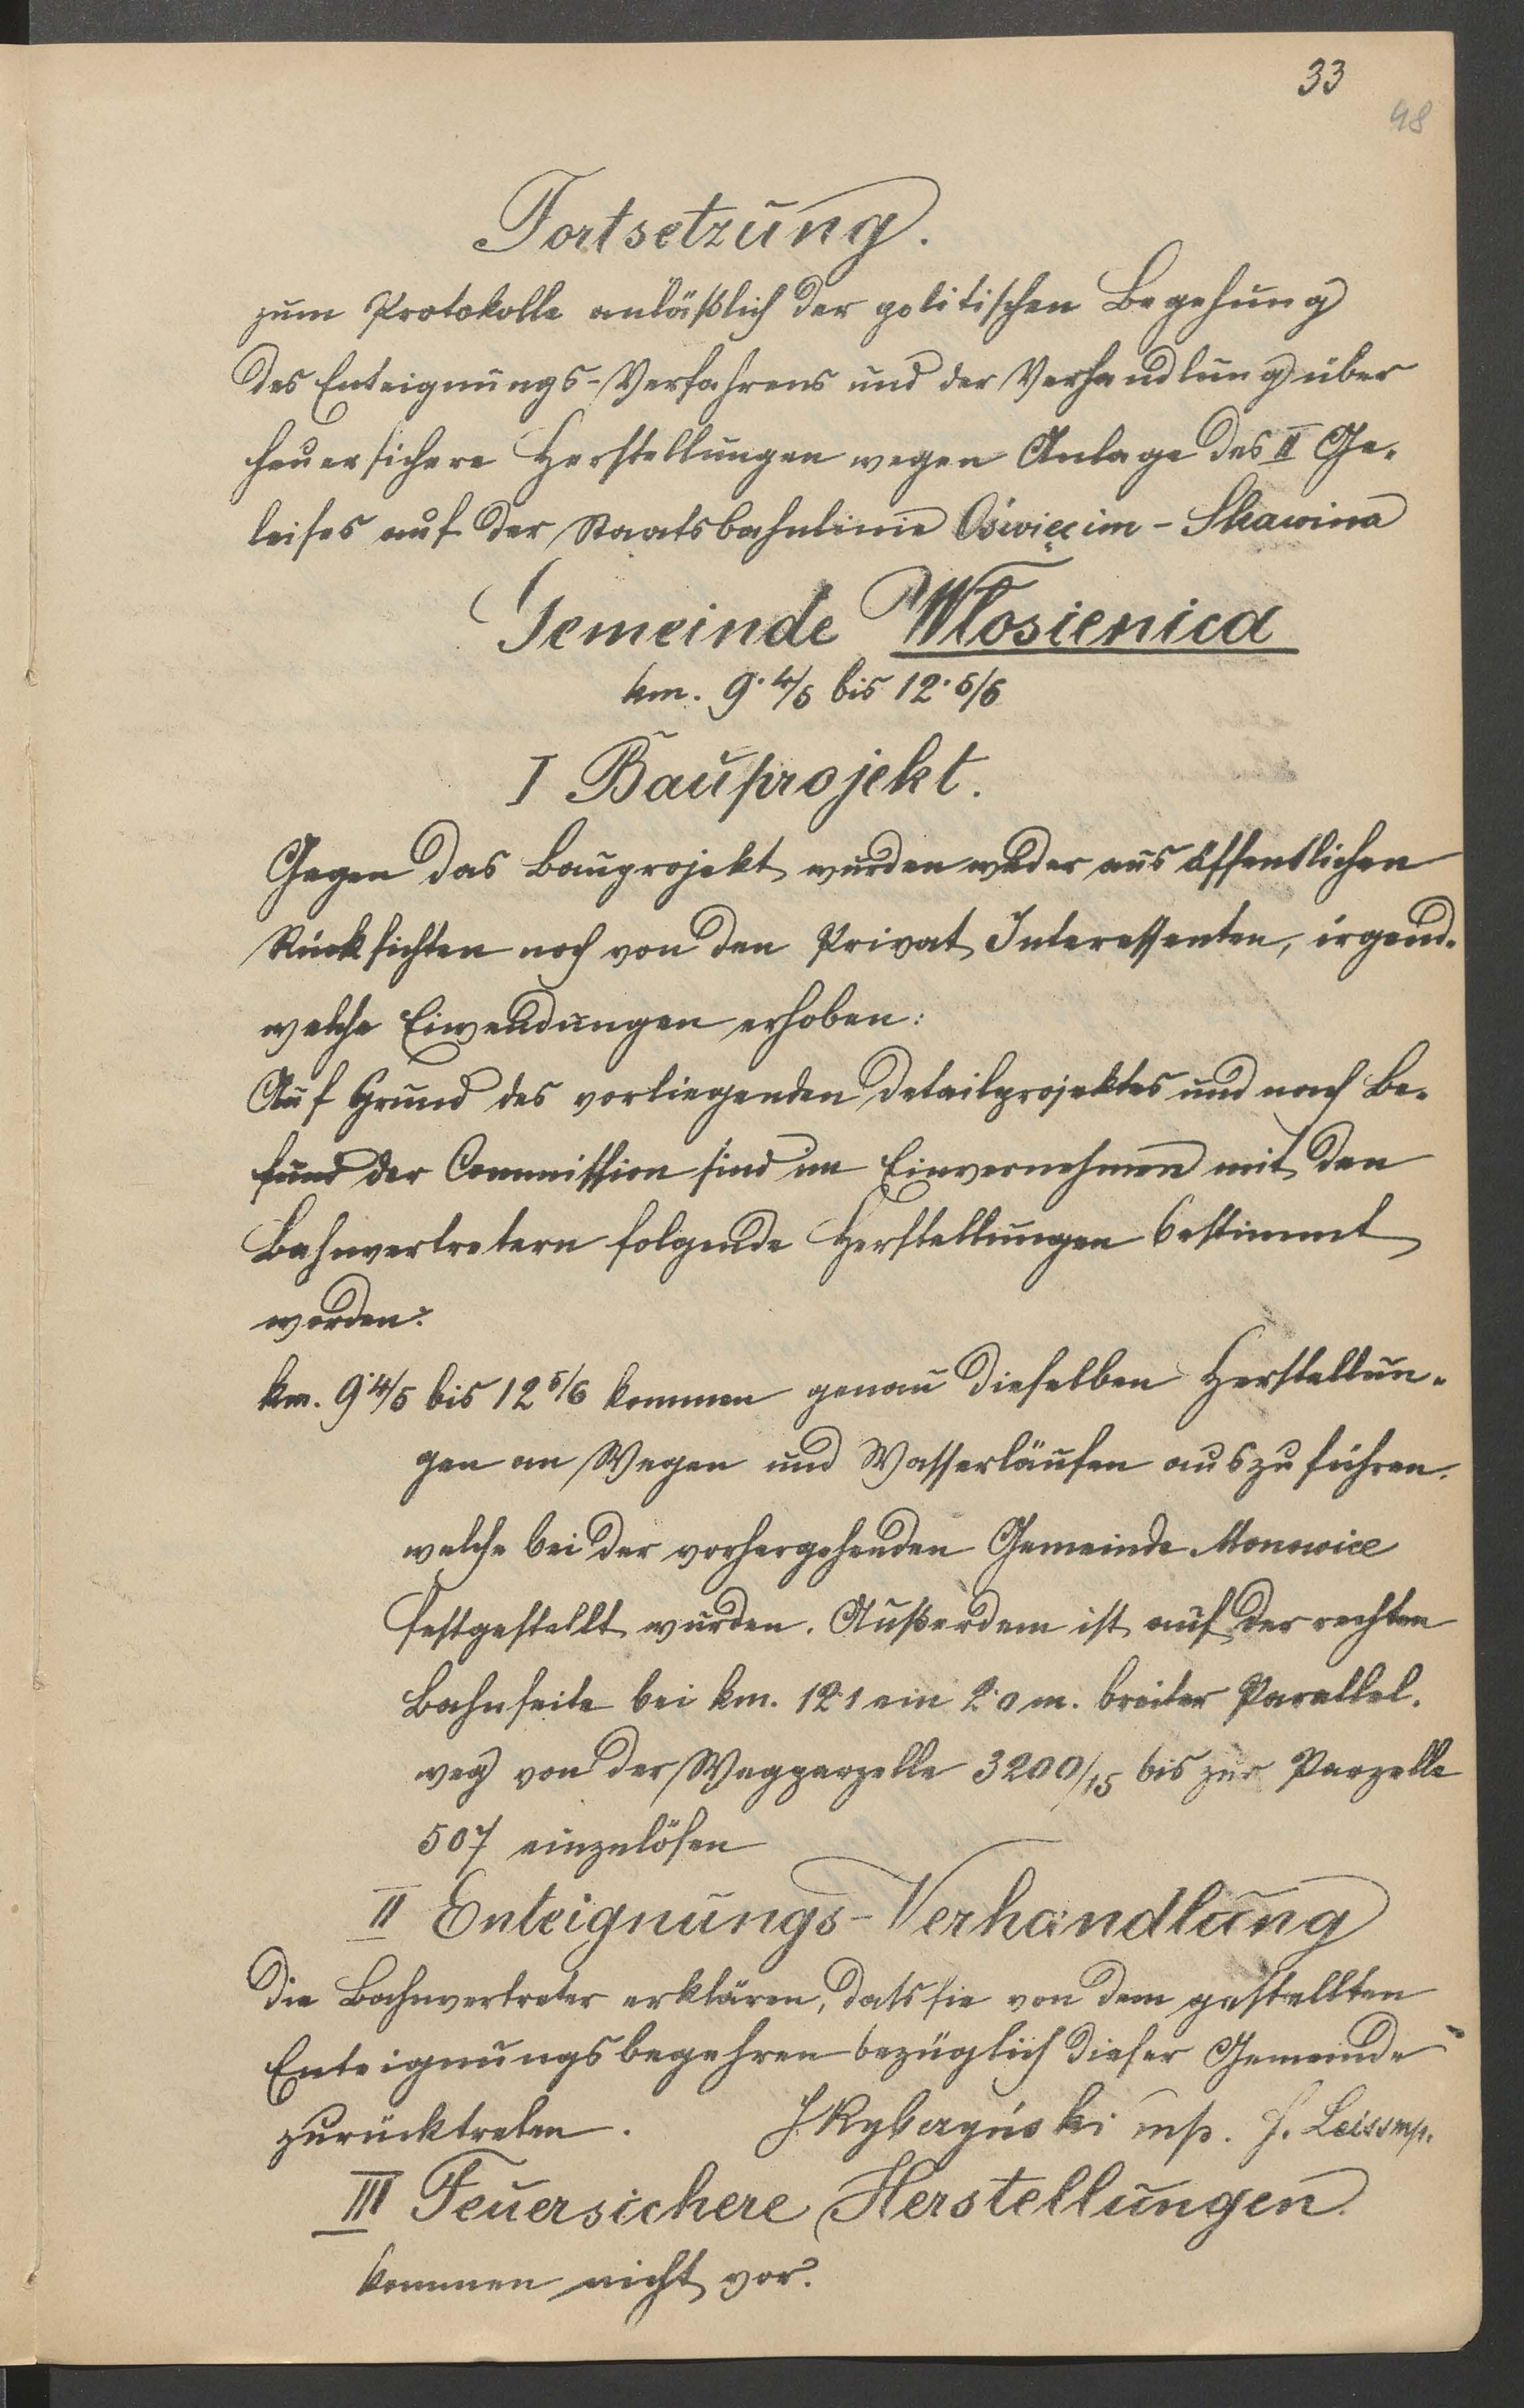 33
48
Fortsetzung.
zum Protokolle anläßlich der politischen Begehung
des Enteignungs-Verfahrens und der Verhandlung über
feuersichere Herstellungen wegen Anlage des II Ge-
leises auf der Staatsbahnlinie Oświęcim - Skawina
Gemeinde Włosienica
km. 9·4/5 bis 12·5/6
I Bauprojekt.
Gegen das Bauprojekt wurden weder aus öffentlichen
Rücksichten noch von den Privat Interessenten, irgend-
welche Eiwendungen erhoben:
Auf Grund des vorliegenden Detailprojektes und nach Be-
fund der Commission sind im Einvernehmen mit den
Bahnvertretern folgende Herstellungen bestimmt
worden:
km. 9·4/5 bis 12 5/6 kommen genau dieselben Herstellun-
gen an Wegen und Wasserläufen auszuführen.
welche bei der vorhergehenden Gemeinde Monowice
festgestellt wurden. Außerdem ist auf der rechten
Bahnseite bei km. 12·1 ein 2·0 m. breiter Parallel-
weg von der Wegparzelle 3200/15 bis zur Parzelle
507 einzulösen
II Enteignungs-Verhandlung
Die Bahnvertreter erklären, dass sie von dem gestellten
Enteignungsbegehren bezüglich dieser Gemeinde
zurücktreten. J Rybczyński mp. J. Leiss mp.
III Feuersichere Herstellungen.
kommen nicht vor.